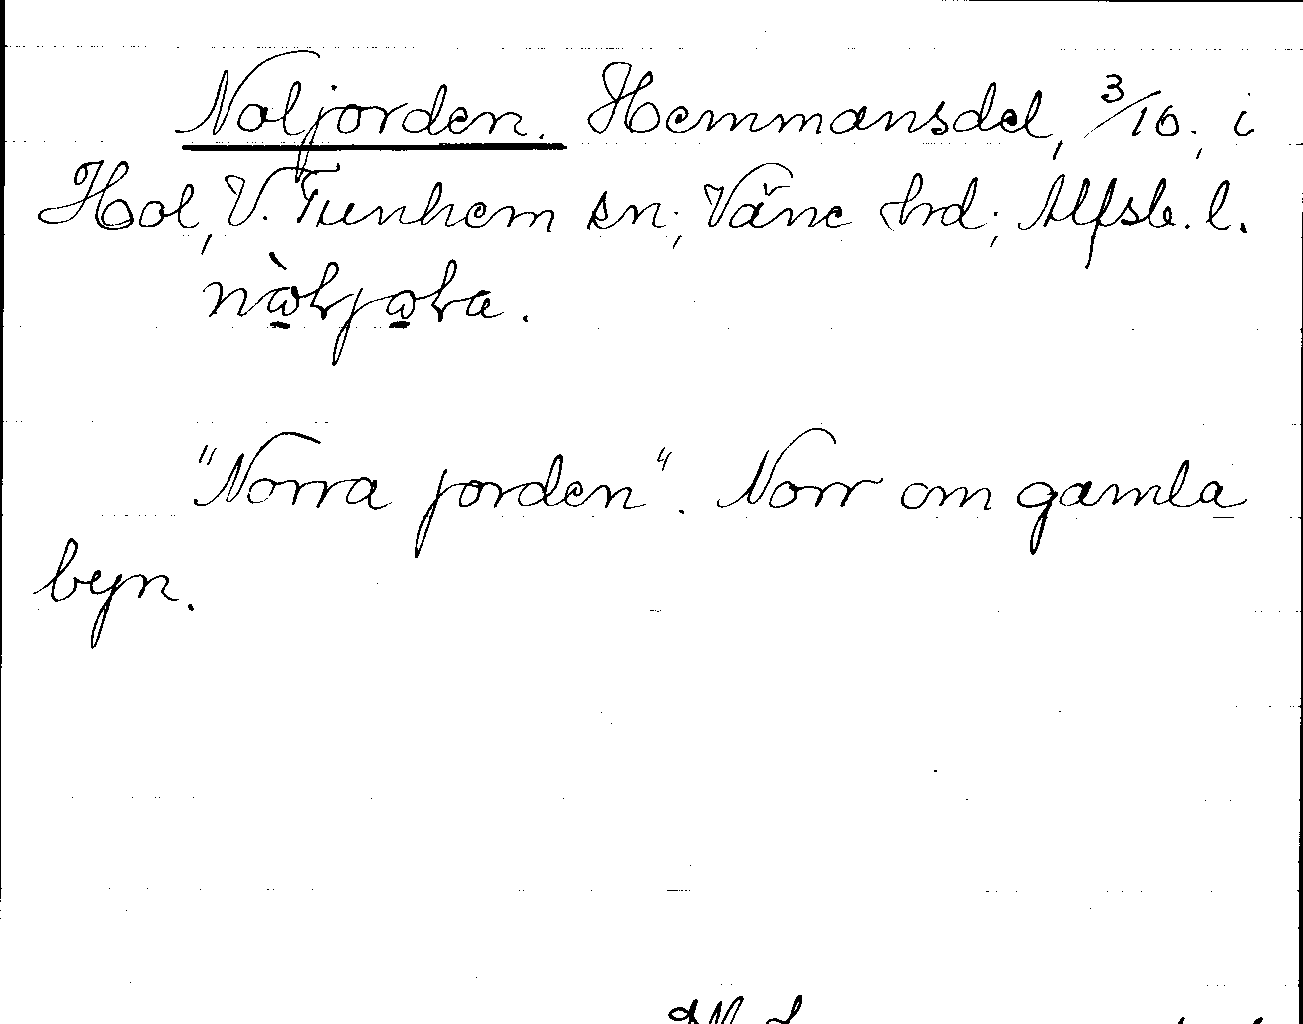 Noljorden. Hemmansdel, 3/16; i
Hol, V. Tunhem sn; Väne hrd; Älfsb. l.
"Norra jorden". Norr om gamla
byn.